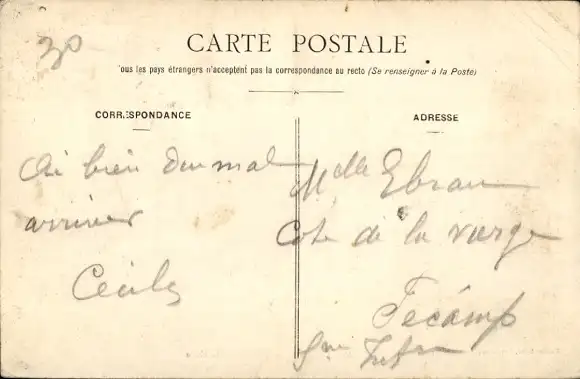 30
CARTE POSTALE
Tous les pays étrangers n'acceptent pas la correspondance au recto (Se renseigner à la Poste)
CORRESPONDANCE
ADRESSE
bien du mal
arriver
Cecile
Melle Ebran
Cote de la vierge
Fecamp
Sne Infre